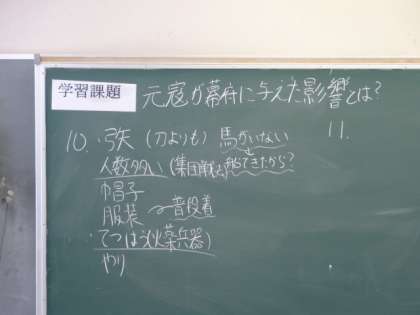 学習課題 元寇が幕府に与えた影響とは?
10. ・弓矢 (刀よりも) 馬がいない 11.
人数多い (集団戦法 できたから?
帽子
服装 普段着
・てつはう(火薬兵器)
やり